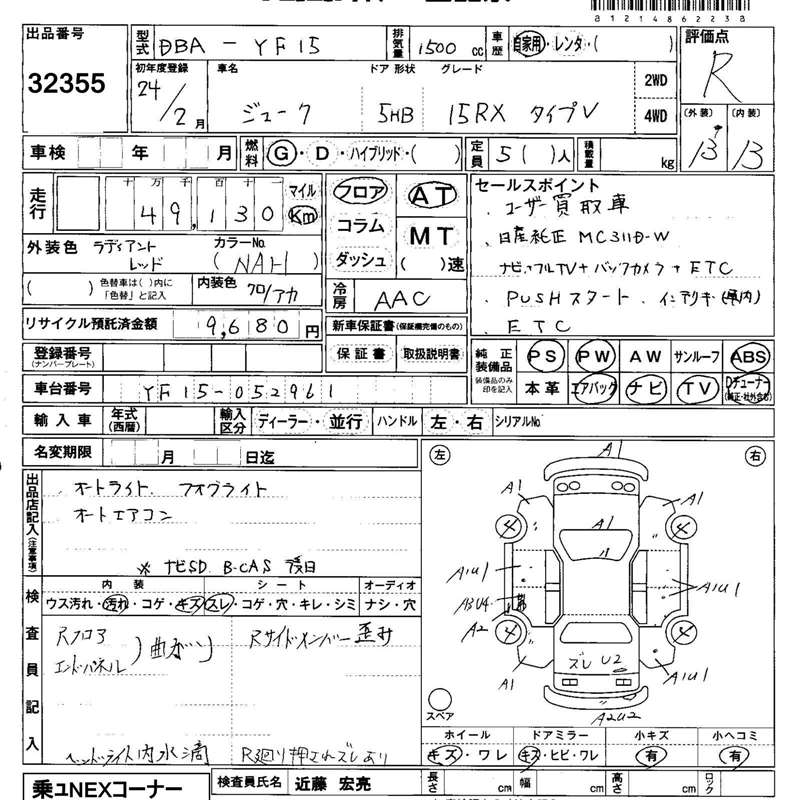 a1214862238
出品番号
32355
型式 DBA - YF15
排気量 1500 cc
車歴 自家用・レンタ・( )
評価点
R
初年度登録
24/2月
車名
ジューク
ドア 形状
5HB
グレード
15RX タイプV
2WD
4WD
(外装) (内装)
B B
車検 年 月
燃料 G・D・ハイブリッド・( )
定員 5( )人
積載量 kg
走行
十 万 千 百 十 一
49,130
マイル
Km
フロア
コラム
ダッシュ
AT
MT
( )速
セールスポイント
、ユーザー買取車
、日産純正 MC311D-W
ナビ+フルTV+バックカメラ+ETC
、PUSHスタート、インテリキー(車内)
、ETC
外装色 ラディアント
レッド
カラーNo.
(NAH)
( )
色替車は( )内に
「色替」と記入
内装色
クロ/アカ
冷房 AAC
リサイクル預託済金額 9,680円
新車保証書(保証継続のもの)
保証書 取扱説明書
登録番号
(ナンバープレート)
純正装備品
装備品のみ印を記入
PS PW AW サンルーフ ABS
本革 エアバック ナビ TV Dチューナー
(純正・社外含む)
車台番号 YF15-052961
輸入車 年式
(西暦)
輸入区分 ディーラー・並行 ハンドル 左・右 シリアルNo.
名変期限 月 日迄
出品店記入(注意事項)
、オートライト、フォグライト
オートエアコン
※ ナビSD B-CAS 後日
検査員記入
内装 シート オーディオ
ウス汚れ・汚れ・コゲ・キズ スレ・コゲ・穴・キレ・シミ ナシ・穴
Rフロア
エンドパネル
)曲がり
Rサイドメンバー歪み
ヘッドライト内水滴
R廻り押されズレあり
左 右
A1
A1
A1
A1
4
4
A1U1
A3U4
A2
A1U1
4
4
ズレ U2
A1
A1U1
A2U2
スペア
ホイール ドアミラー 小キズ 小ヘコミ
キズ・ワレ キズ・ヒビ・ワレ 有 有
乗ュNEXコーナー
検査員氏名 近藤 宏亮
長さ cm 幅 cm 高さ cm ロック